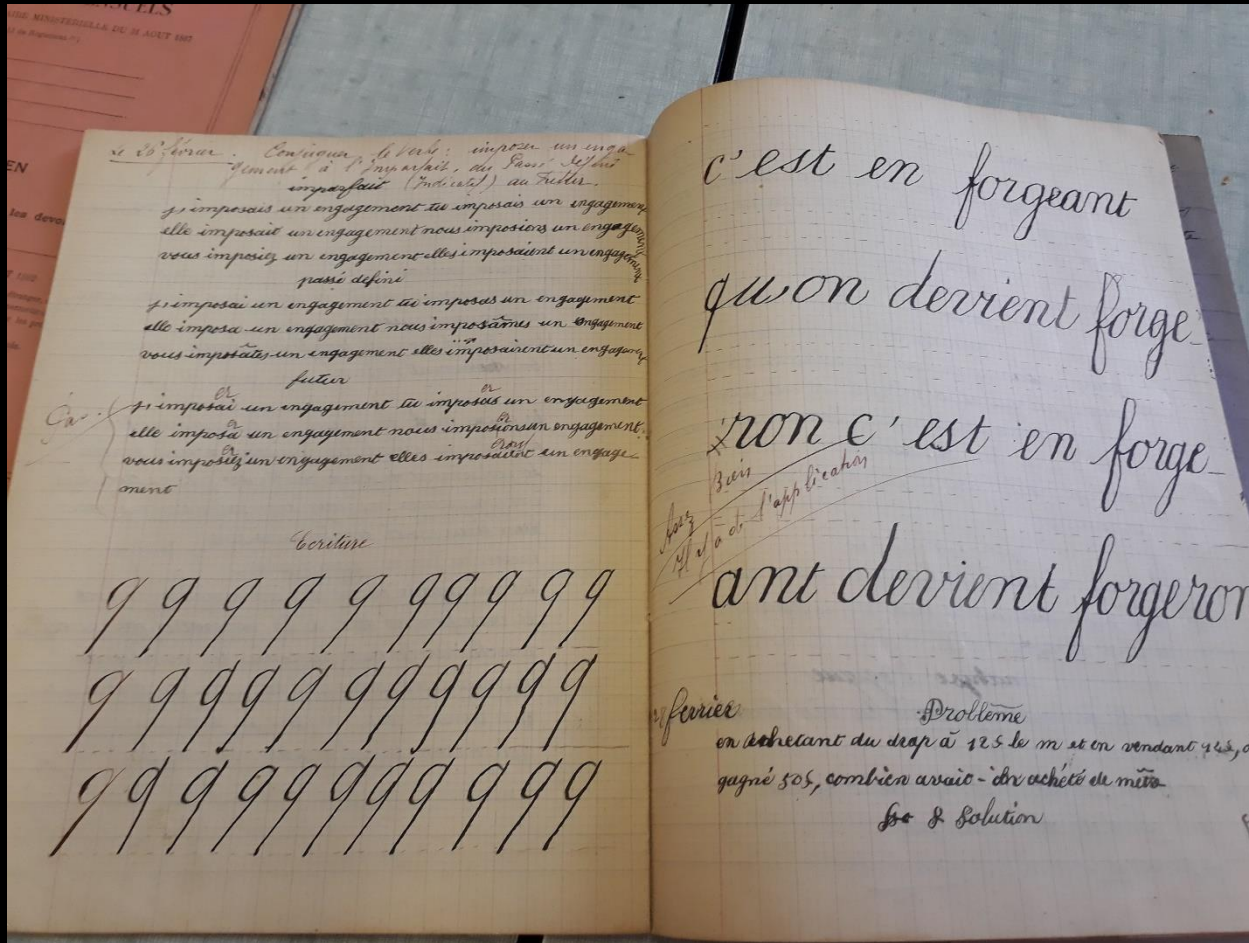 NSUELS
MINISTÉRIELLE DU 31 AOUT 1887
EN
les devo
Le 26 février. Conjuguer le verbe : imposer un enga-
gement à l'Imparfait, au Passé défini
imparfait (Indicatif) au Futur.
j'imposais un engagement tu imposais un engagement
elle imposait un engagement nous imposions un engagement
vous imposiez un engagement elles imposaient un engagement
passé defini
j'imposai un engagement tu imposas un engagement
elle imposa un engagement nous imposâmes un engagement
vous imposâtes un engagement elles imposairent un engagement
futur
j'imposai un engagement tu imposas un engagement
er er
elle imposa un engagement nous imposions un engagement
er er
vous imposiez un engagement elles imposaient un engage-
er eron
ment
Ecriture
q q q q q q q q q q
q q q q q q q q q q
q q q q q q q q q q
c'est en forgeant
qu'on devient forge-
ron c'est en forge-
Assez Bien
Il y a de l'application
ant devient forgeron
ferrier
Problème
en achetant du drap à 12 le m et en vendant
gagné 50, combien avait-on achété de
Solution